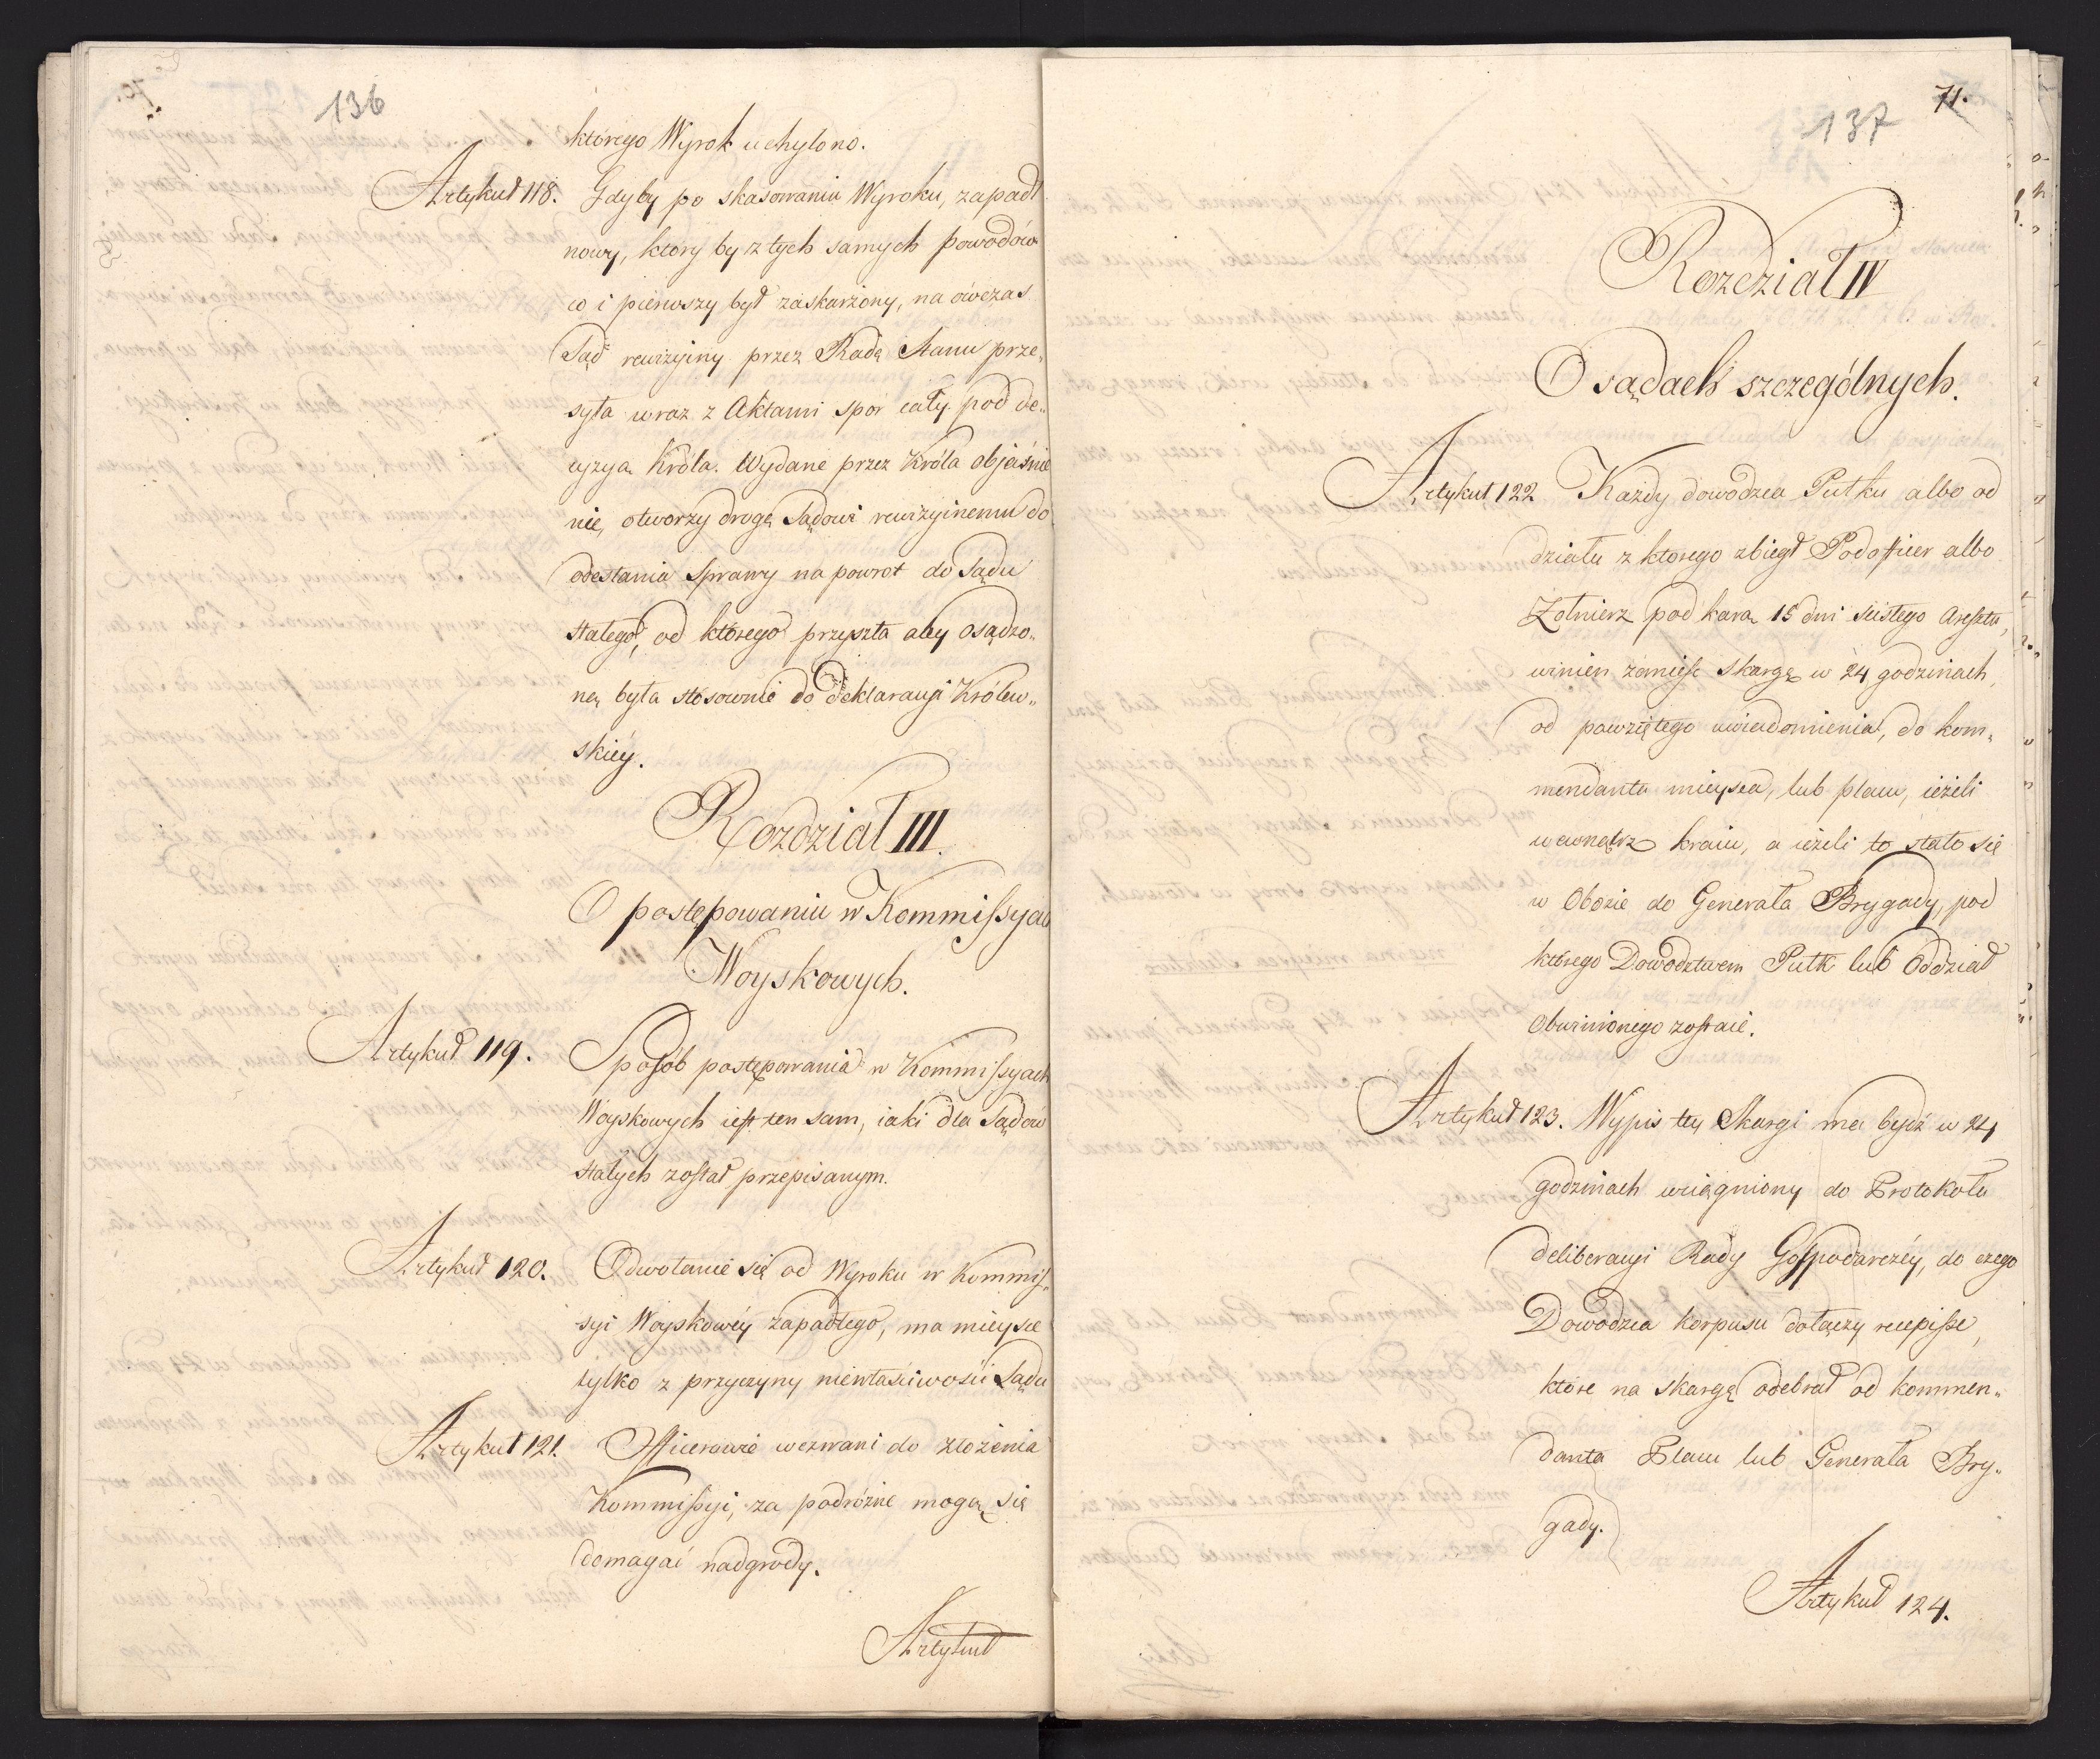 136
którego Wyrok uchylono.
Artykuł 118. Gdyby po skasowaniu Wyroku, zapadł
nowy, który by z tych samych powodów
co i pierwszy był zaskarżony, na ówczas
Sąd rewizyiny przez Radę Stanu prze„
syła wraz z Aktami spór cały pod de„
cyzyą Króla. Wydane przez Króla objaśnie
nie, otworzy drogę Sądowi rewizyinemu do
odesłania sprawy na powrot do Sądu
stałego, od którego przyszła aby osądzo„
ną była stosownie do deklaracyi Królew„
skiéy.
Rozdział III.
O postępowaniu w Kommissyach
Woyskowych.
Artykuł 119. Sposób postępowania w Kommissyach
Woyskowych iest ten sam, iaki dla Sądów
stałych został przepisanym.
Artykuł 120. Odwołanie się od Wyroku w Kommis„
syi Woyskowéy zapadłego, ma mieysce
tylko z przyczyny niewłaściwości Sądu
Artykuł 121. Officerowie wezwani do złożenia
Kommissyi, za podróżne mogą się
domagać nadgrody.
Artykuł
71.
137
Rozdział IV
O sądach szczególnych.
Artykuł 122 Każdy dowodzca Pułku albo od
działu z ktorego zbiegł Podoficer albo
Żołnierz pod karą 15 dni ścisłego Aresztu,
winien zanieść skargę w 24 godzinach,
od powziętego uwiadomienia, do kom„
mendanta mieysca, lub placu, ieżeli
wewnątrz kraiu, a ieżeli to stało się
w Obozie do Generała Brygady, pod
którego Dowodztwem Pułk lub Oddział
Obwinionego zostaie.
Artykuł 123. Wypis téy Skargi ma bydź w 24
godzinach wciągniony do Protokołu
deliberacyi Rady Gospodarczéy, do czego
Dowodzca korpusu dołączy recepisse,
które na skargę odebrał od kommen„
danta Placu lub Generała Bry„
gady.
Artykuł 124.